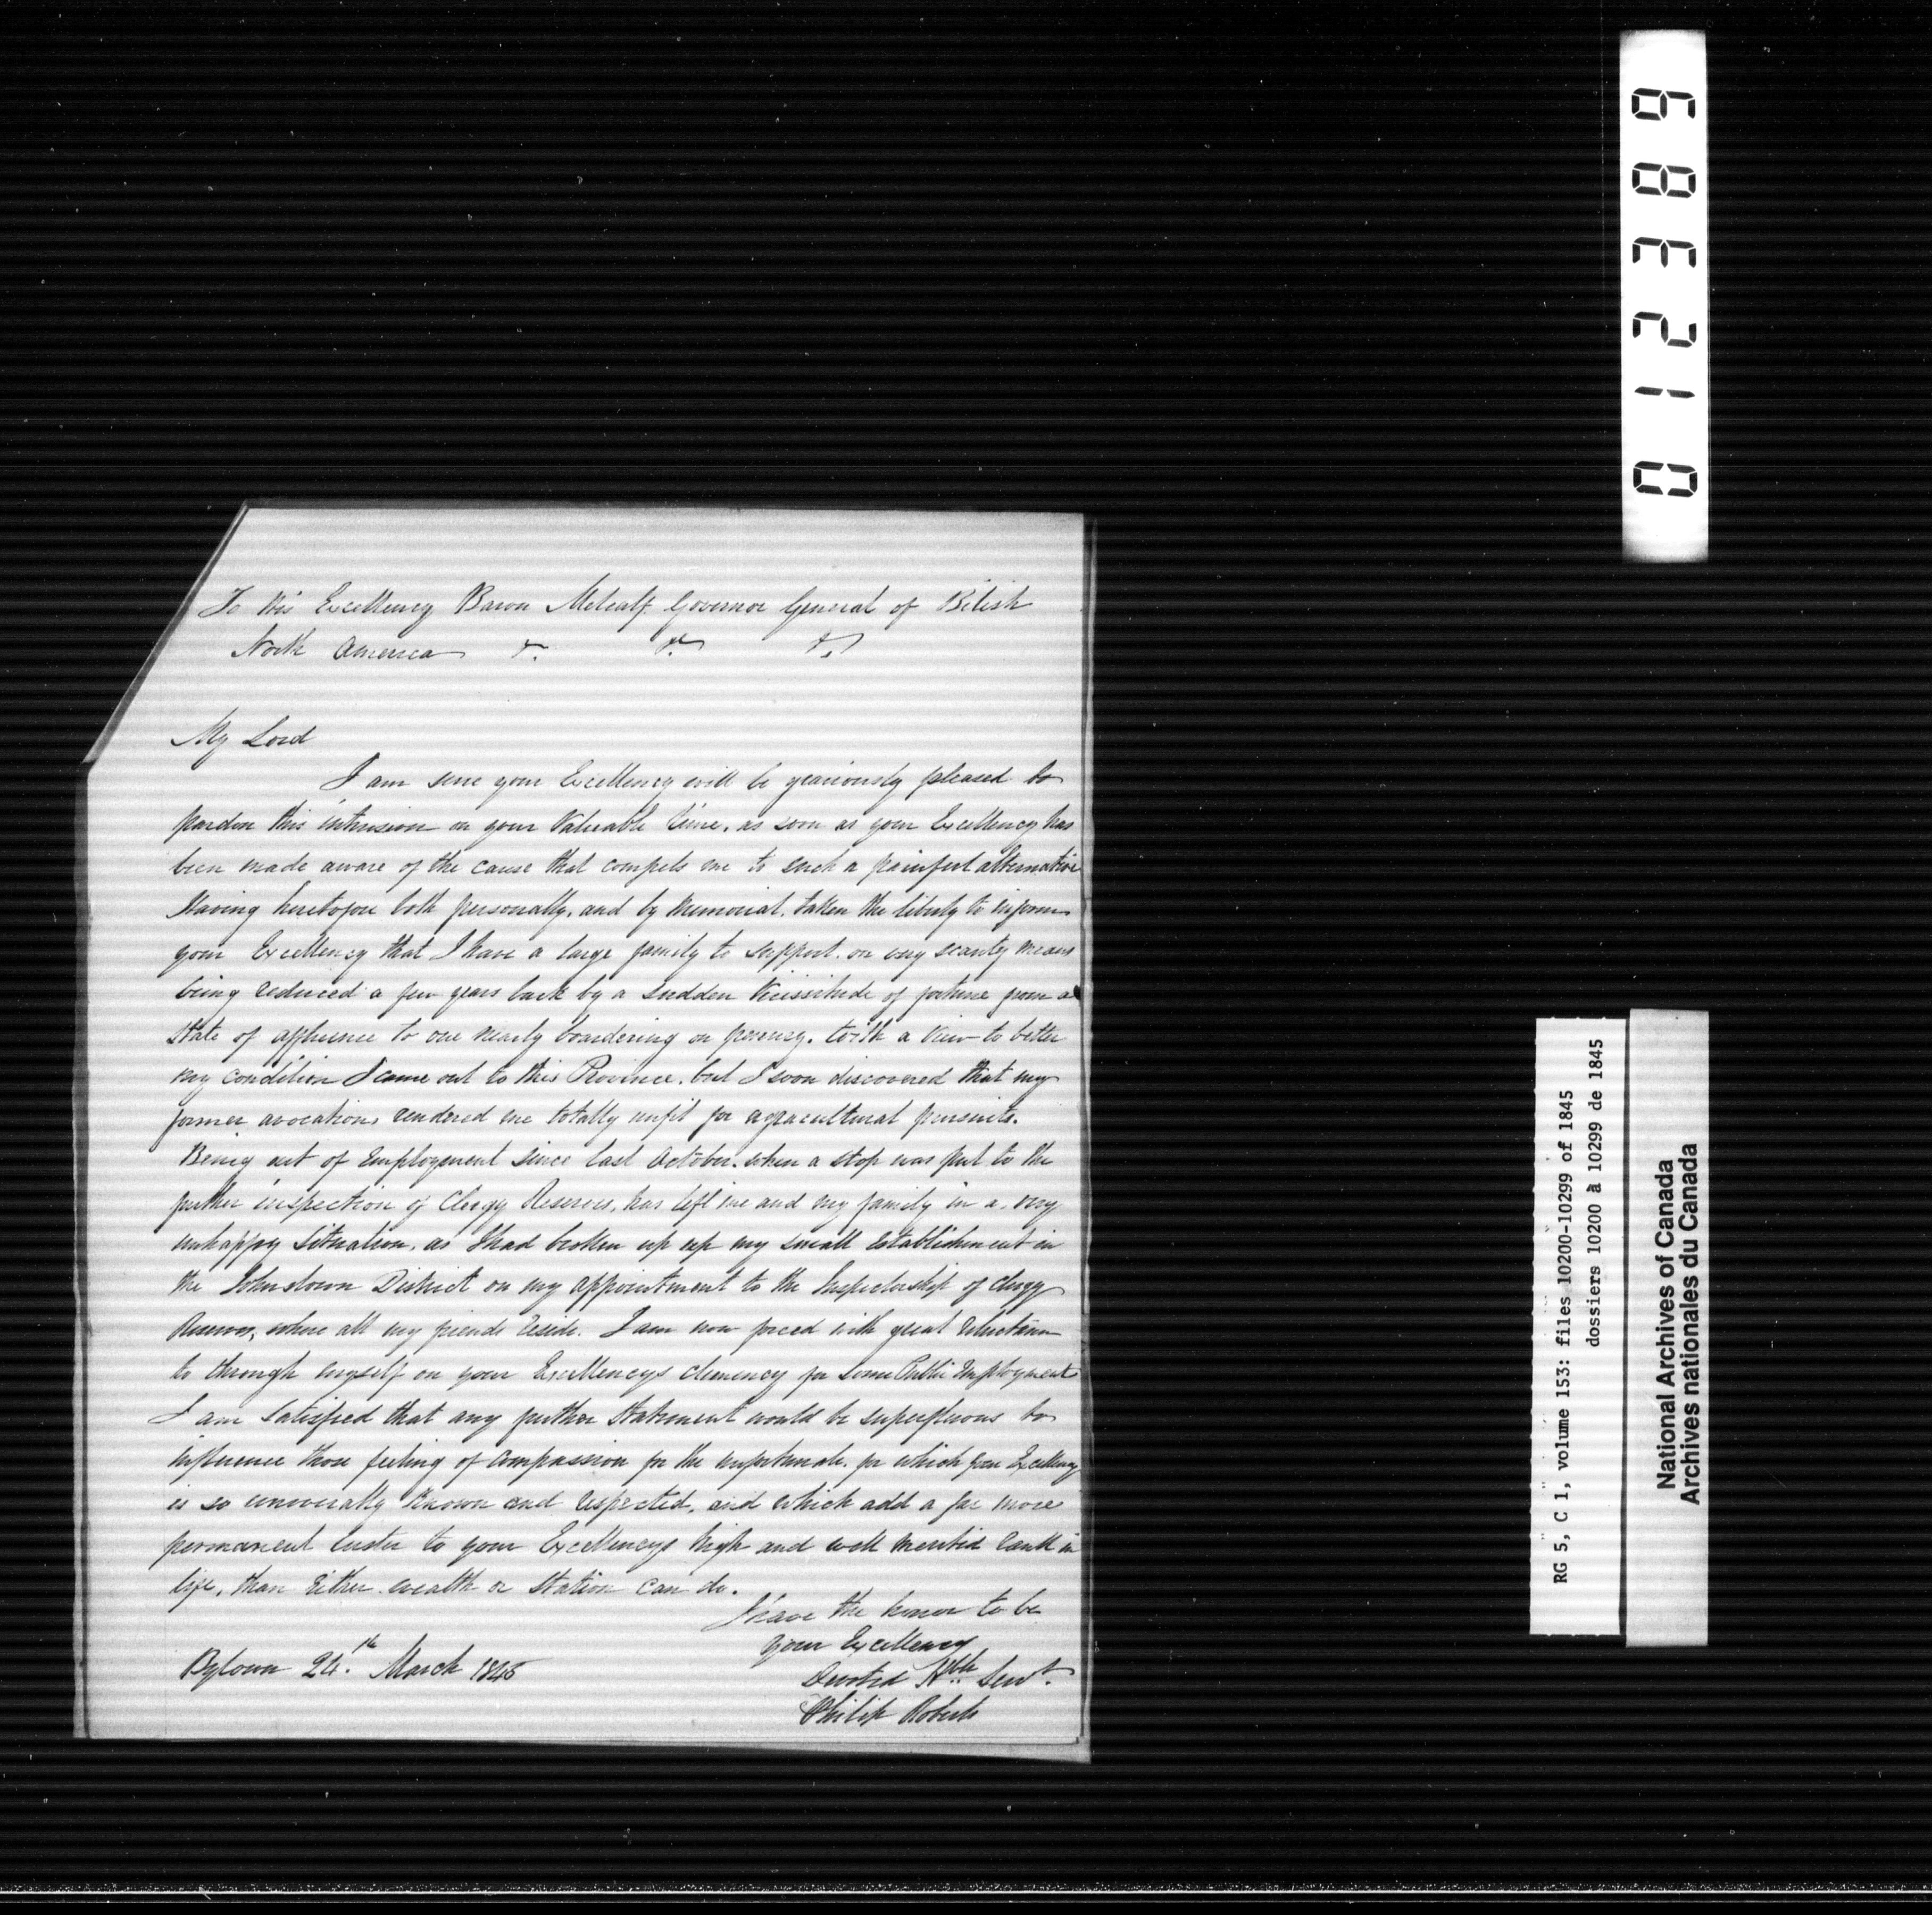 To His Excellency Baron Metcalf Governor General of British
North America &. &. &.
My Lord
I am sure your Excellency will be graciously pleased to
pardon this intrusion on your Valuable time, as soon as your Excellency has
been made aware of the cause that compels me to such a painful alternative
Having heretofore both personally, and by Memorial, taken the liberty to inform
your Excellency that I have a large family to support on very scanty means
being reduced a few years back by a sudden vicissitude of fortune from a
state of affluence to one nearly boardering on penury. With a view to better
my condition I came out to this Province, but I soon discovered that my
former avocations rendered me totally unfit for agracultural pursuits.
Being out of Employment since last October when a stop was put to the
further inspection of Clergy Reserves, has left me and my family in a very
unhappy situation, as I had broken up up my small establishment in
the Johnstown District on my appointment to the Inspectorship of Clergy
Reserves, where all my friends reside. I am now forced with great reluctance
to through myself on your Excellencys clemency for some Public Employment
I am satisfied that any further statement would be superfluous to
influence those feeling of compassion for the unfortunate, for which your Excellency
is so universally known and respected, and which add a far more
permanent luster to your Excellencys high and well merited rank in
life, than either wealth or station can do.
I have the honor to be
your Excellency
Devoted Hble Servt.
Philip Roberts
Bytown 24th March 1845
012389
RG 5, C 1, volume 153: files 10200-10299 of 1845
dossiers 10200 à 10299 de 1845
National Archives of Canada
Archives nationales du Canada